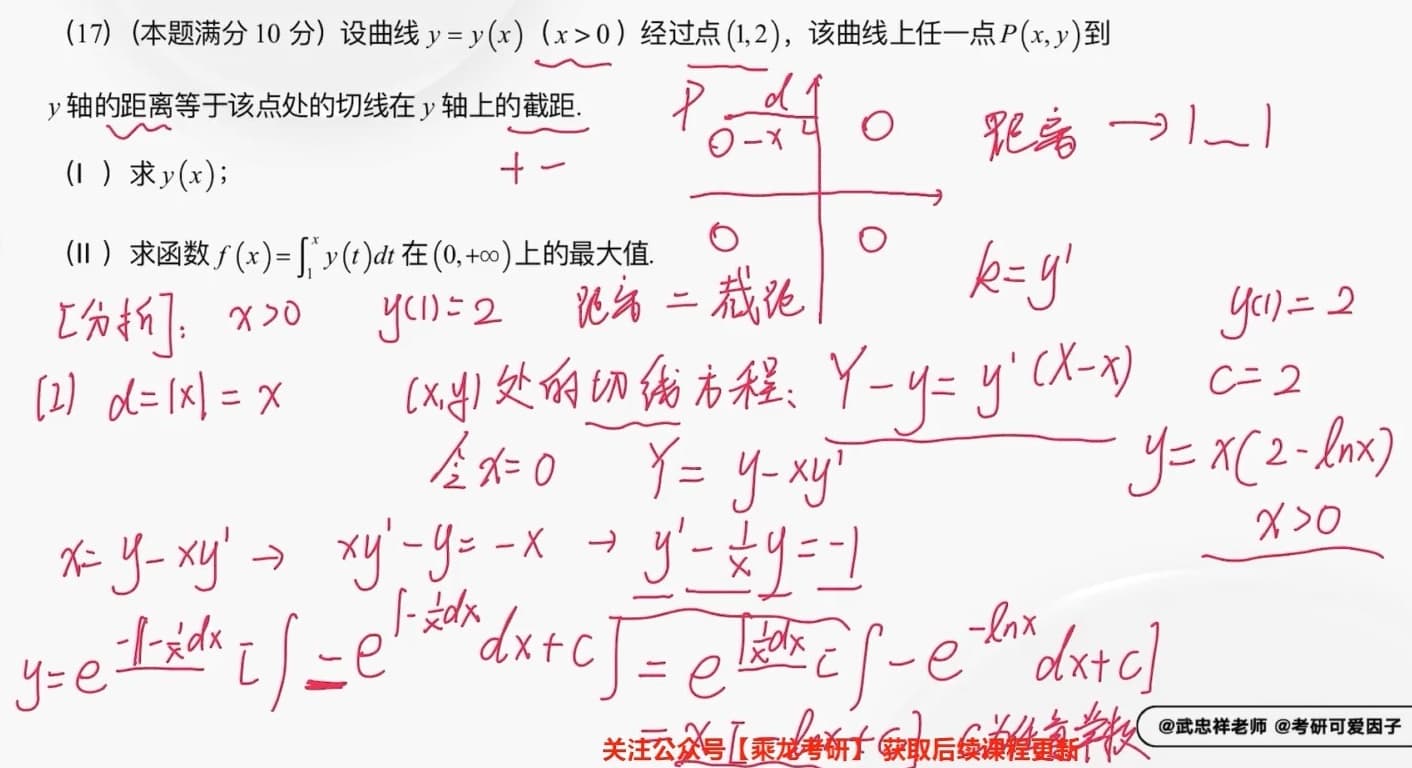 (17)（本题满分 10 分）设曲线 y = y(x)（x > 0）经过点 (1,2)，该曲线上任一点 P(x,y) 到
y 轴的距离等于该点处的切线在 y 轴上的截距.
(Ⅰ ) 求 y(x)；
(Ⅱ ) 求函数 f(x) = ∫₁ˣ y(t)dt 在 (0,+∞) 上的最大值.
P d
0-x 0
距离 → |_|
+ -
0 0
k = y'
[分析]: x>0 y(1)=2 距离 = 截距
y(1)=2
(1) d=|x| = x (x,y) 处的切线方程: Y-y = y'(X-x)
c=2
令 x=0 Y = y-xy'
y = x(2-lnx)
x>0
x= y-xy' → xy'-y = -x → y' - 1/x y = -1
y = e^{-∫-1/x dx} [∫ -e^{∫-1/x dx} dx+c] = e^{∫1/x dx} [∫ -e^{-lnx} dx+c]
= x [-lnx+c] c为任意常数
@武忠祥老师 @考研可爱因子
关注公众号【乘龙考研】 获取后续课程更新